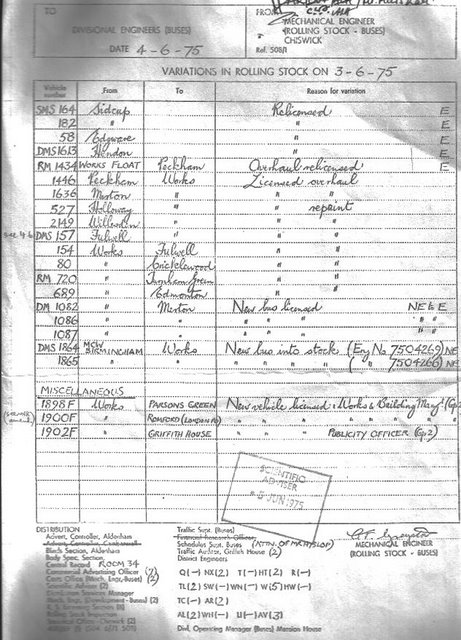 TO
DIVISIONAL ENGINEERS (BUSES)
DATE 4-6-75
FROM
MECHANICAL ENGINEER
(ROLLING STOCK - BUSES)
CHISWICK
Ref. 508/1
VARIATIONS IN ROLLING STOCK ON 3-6-75
Vehicle number From To Reason for variation
SMS 164 Sidcup Relicensed E
182 " " E
58 Edgware " E
DMS 1613 Hendon " E
RM 1434 WORKS FLOAT Peckham Overhaul relicensed E
1446 Peckham Works Licensed overhaul
1636 Merton " " "
527 Holloway " " repaint
2149 Willesden " " "
DMS 157 Fulwell " " "
154 Works Fulwell " "
80 " Cricklewood " "
RM 720 " Turnham Green " "
689 " Edmonton " "
DM 1082 " Merton New bus licensed NE & E
1086 " " " " " " "
1087 " " " " " " "
DMS 1864 MCW BIRMINGHAM Works New bus into stock (Eng No 7504269) NE
1865 " " " " " " ( " " 7504266) NE
MISCELLANEOUS
1898F Works PARSONS GREEN New vehicle licensed: Works & Building Mangr (Gp2)
1900F " ROMFORD (LONDON RD) " " " " " "
1902F " GRIFFITH HOUSE " " " PUBLICITY OFFICER (Gp.2)
SCIENTIFIC
ADVISER
5 JUN 1975
DISTRIBUTION
Advert. Controller, Aldenham
Blinds Section, Aldenham
Body Spec. Section,
Central Record ROOM 34
Commercial Advertising Officer (7)
Costs Office (Mech. Engr. Buses) (2)
Scientific Adviser (2)
Distribution Services Manager
Traffic Supt. (Buses)
Financial Research Officer
Schedules Supt. Buses (ATTN. OF MR HYSLOP)
Traffic Auditor, Griffith House (2)
District Engineers
Q(-) NX(2) T(-) HT(2) R(-)
TL(2) SW(-) WN(-) W(5) HW(-)
TC(-) AR(2)
AL(2) WH(-) U(-) AV(3)
Divl. Operating Manager (Buses) Mansion House
MECHANICAL ENGINEER
(ROLLING STOCK - BUSES)